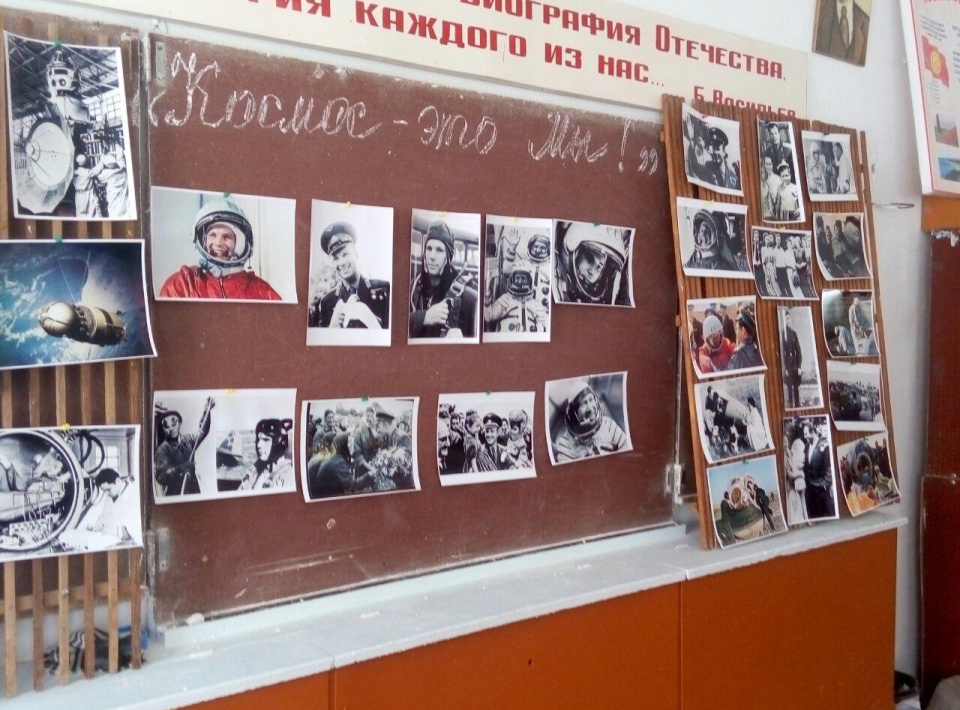 БИОГРАФИЯ ОТЕЧЕСТВА.
КАЖДОГО ИЗ НАС...
Б. Васильев
"Космос - это Мы!"